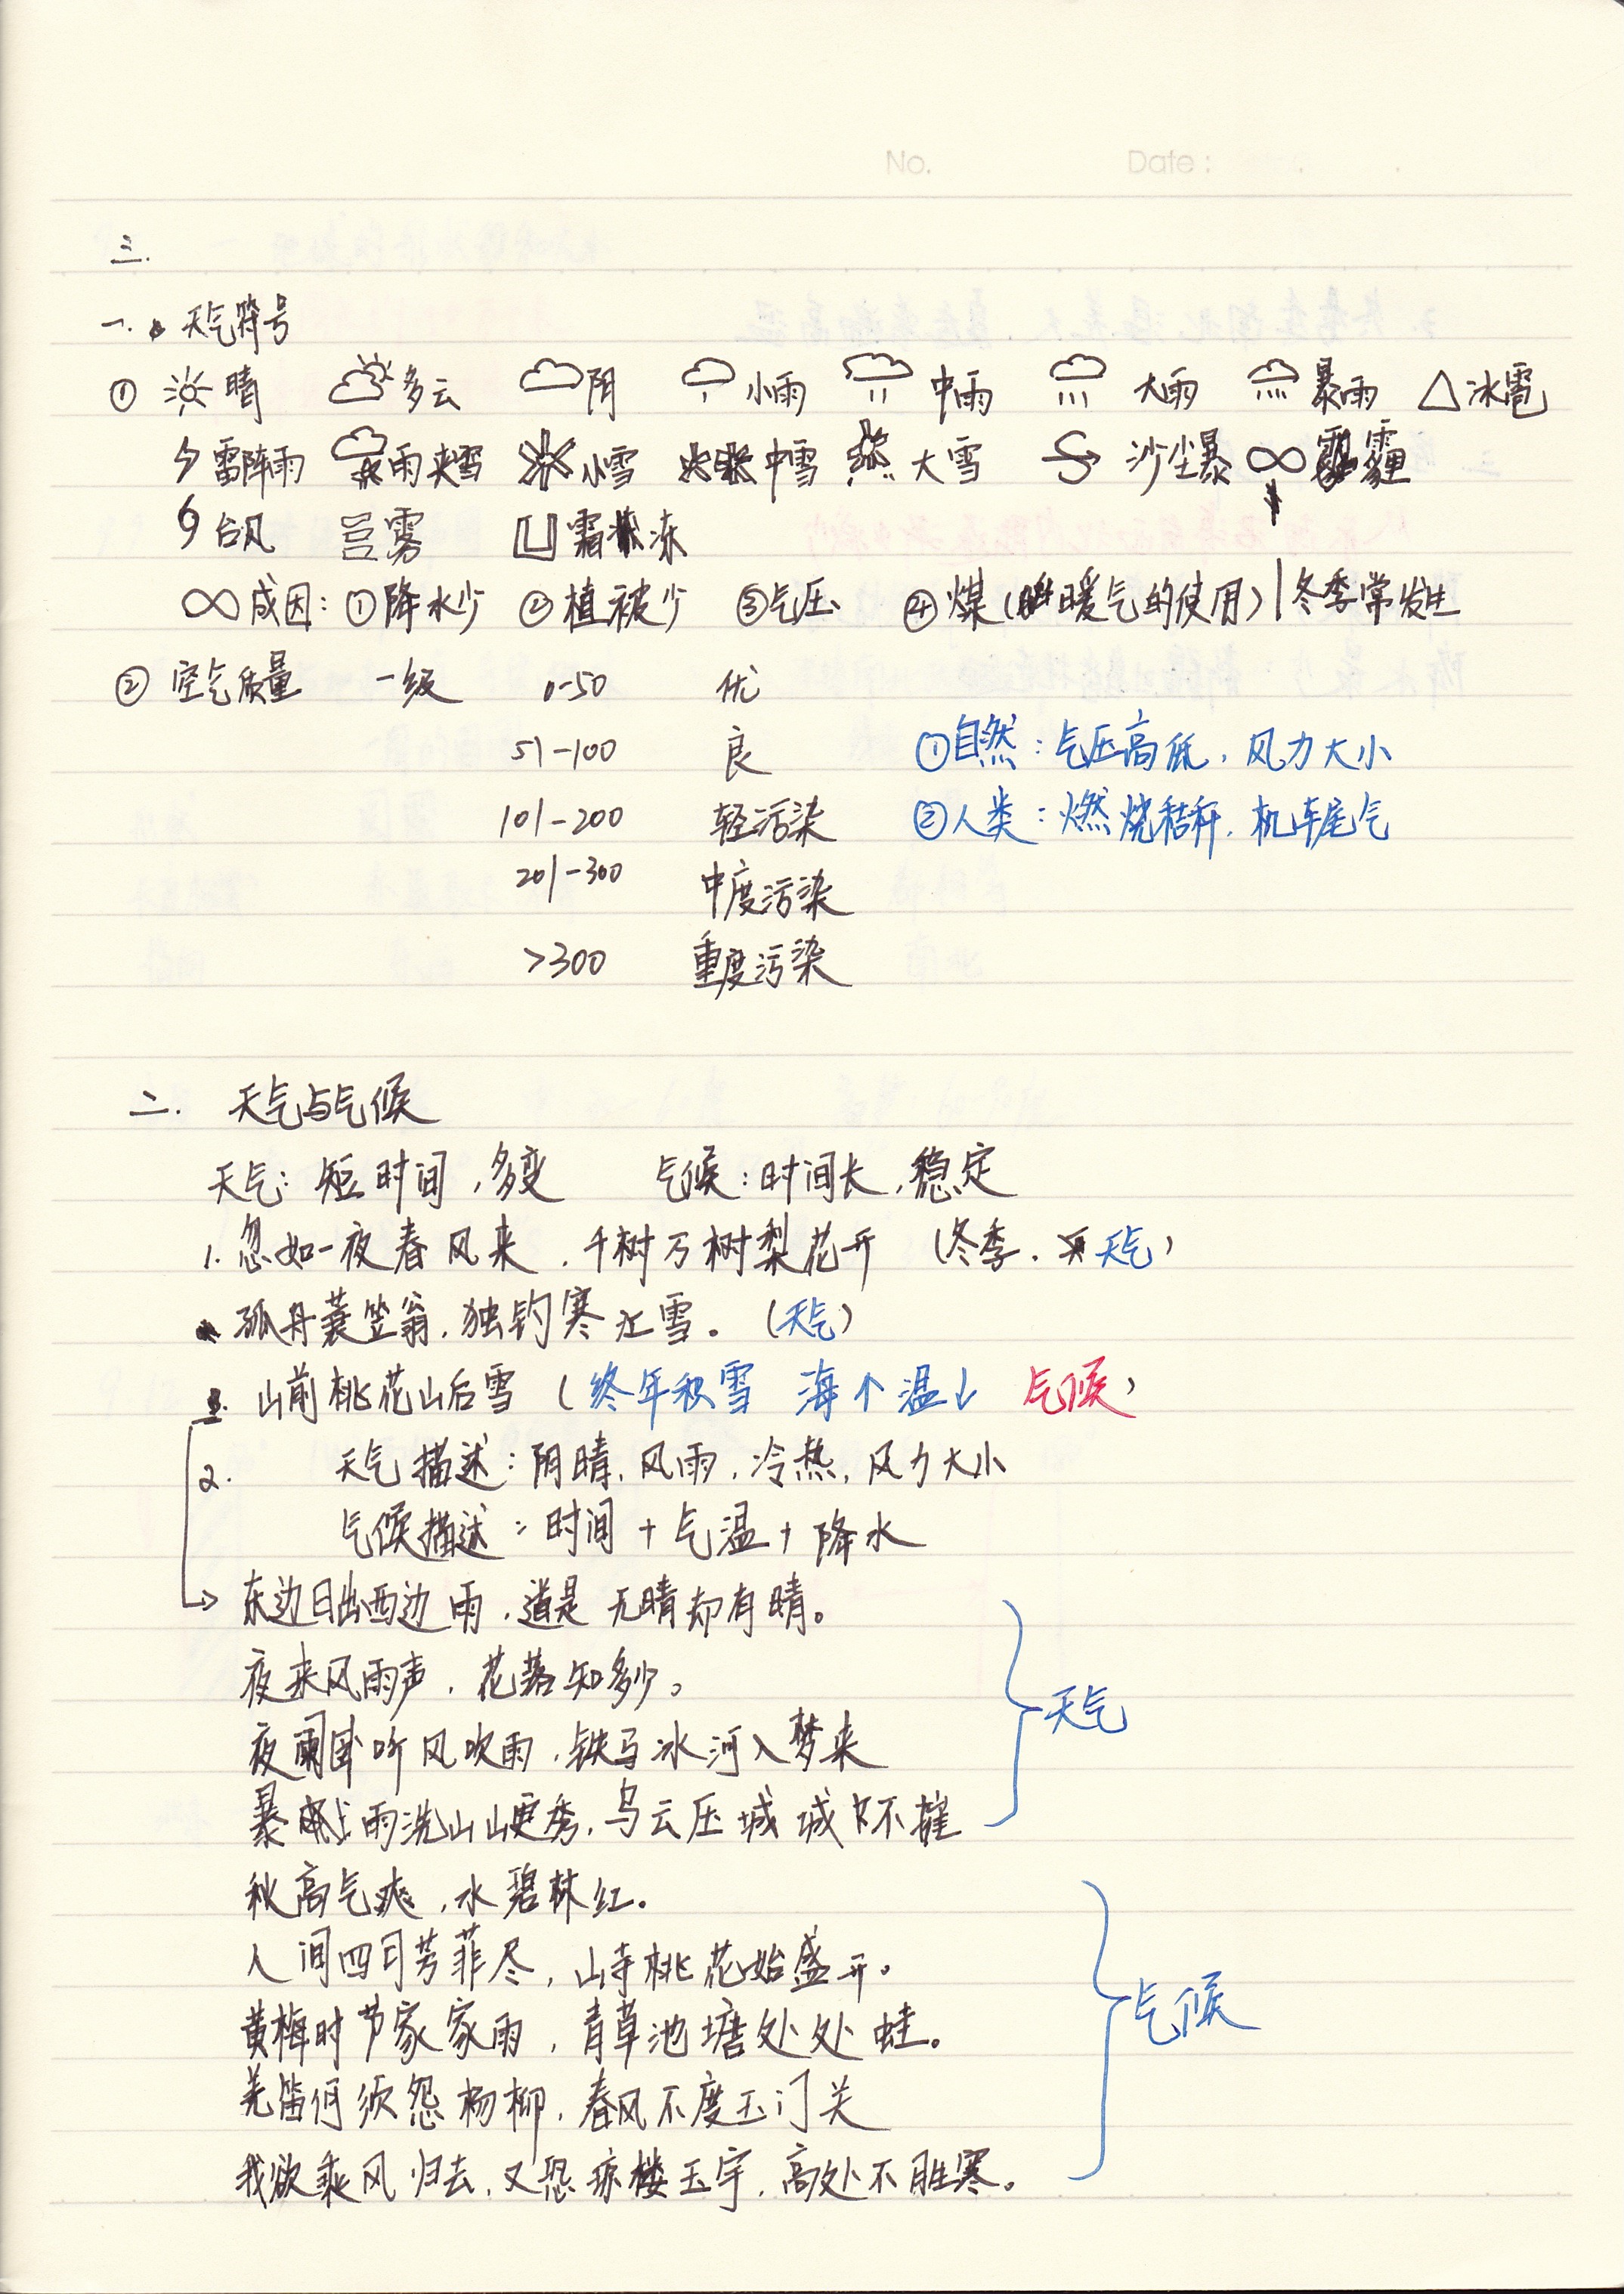 No. Date:
三.
一. 天气符号
① 晴 多云 阴 小雨 中雨 大雨 暴雨 △冰雹
雷阵雨 雨夹雪 小雪 中雪 大雪 沙尘暴 ∞ 霾
台风 雾 霜冻
∞成因: ①降水少 ②植被少 ③气压 ④煤(暖气的使用)|冬季常发生
② 空气质量 一级 0-50 优
51-100 良 ①自然: 气压高低, 风力大小
101-200 轻污染 ②人类: 燃烧秸秆, 机车尾气
201-300 中度污染
>300 重度污染
二. 天气与气候
天气: 短时间, 多变 气候: 时间长, 稳定
1. 忽如一夜春风来, 千树万树梨花开 (冬季. 天气)
孤舟蓑笠翁, 独钓寒江雪。(天气)
山前桃花山后雪 (终年积雪 海↑温↓ 气候)
2. 天气描述: 阴晴, 风雨, 冷热, 风力大小
气候描述: 时间+气温+降水
→ 东边日出西边雨, 道是无晴却有晴。
夜来风雨声, 花落知多少。
夜阑卧听风吹雨, 铁马冰河入梦来 天气
暴雨洗山山更秀, 乌云压城城不摧
秋高气爽, 水碧林红。
人间四月芳菲尽, 山寺桃花始盛开。
黄梅时节家家雨, 青草池塘处处蛙。 气候
羌笛何须怨杨柳, 春风不度玉门关
我欲乘风归去, 又恐琼楼玉宇, 高处不胜寒。